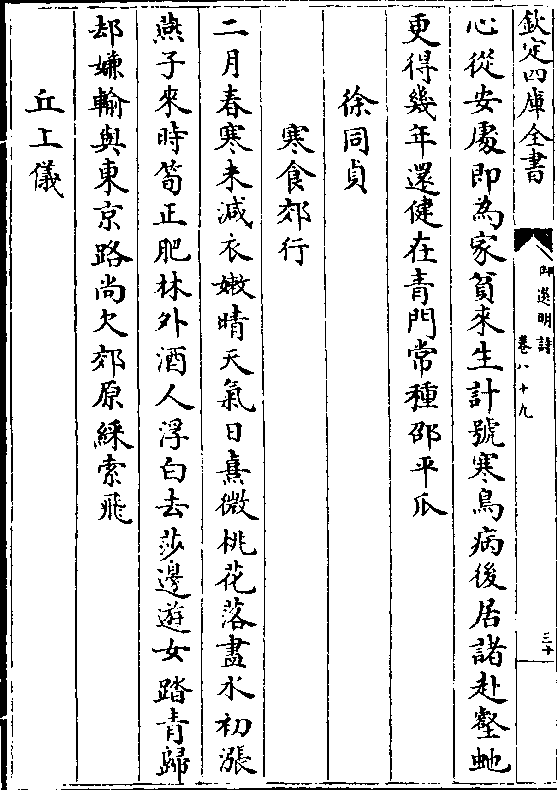 欽定四庫全書
御選明詩
卷八十九
三十
心從安處即為家貧來生計號寒鳥病後居諸赴壑虵
更得幾年還健在青門常種邵平瓜
徐同貞
寒食郊行
二月春寒未減衣嫩晴天氣日熹微桃花落盡水初漲
燕子來時筍正肥林外酒人浮白去莎邊遊女踏青歸
却嫌輸與東京路尚欠郊原綵索飛
丘工儀